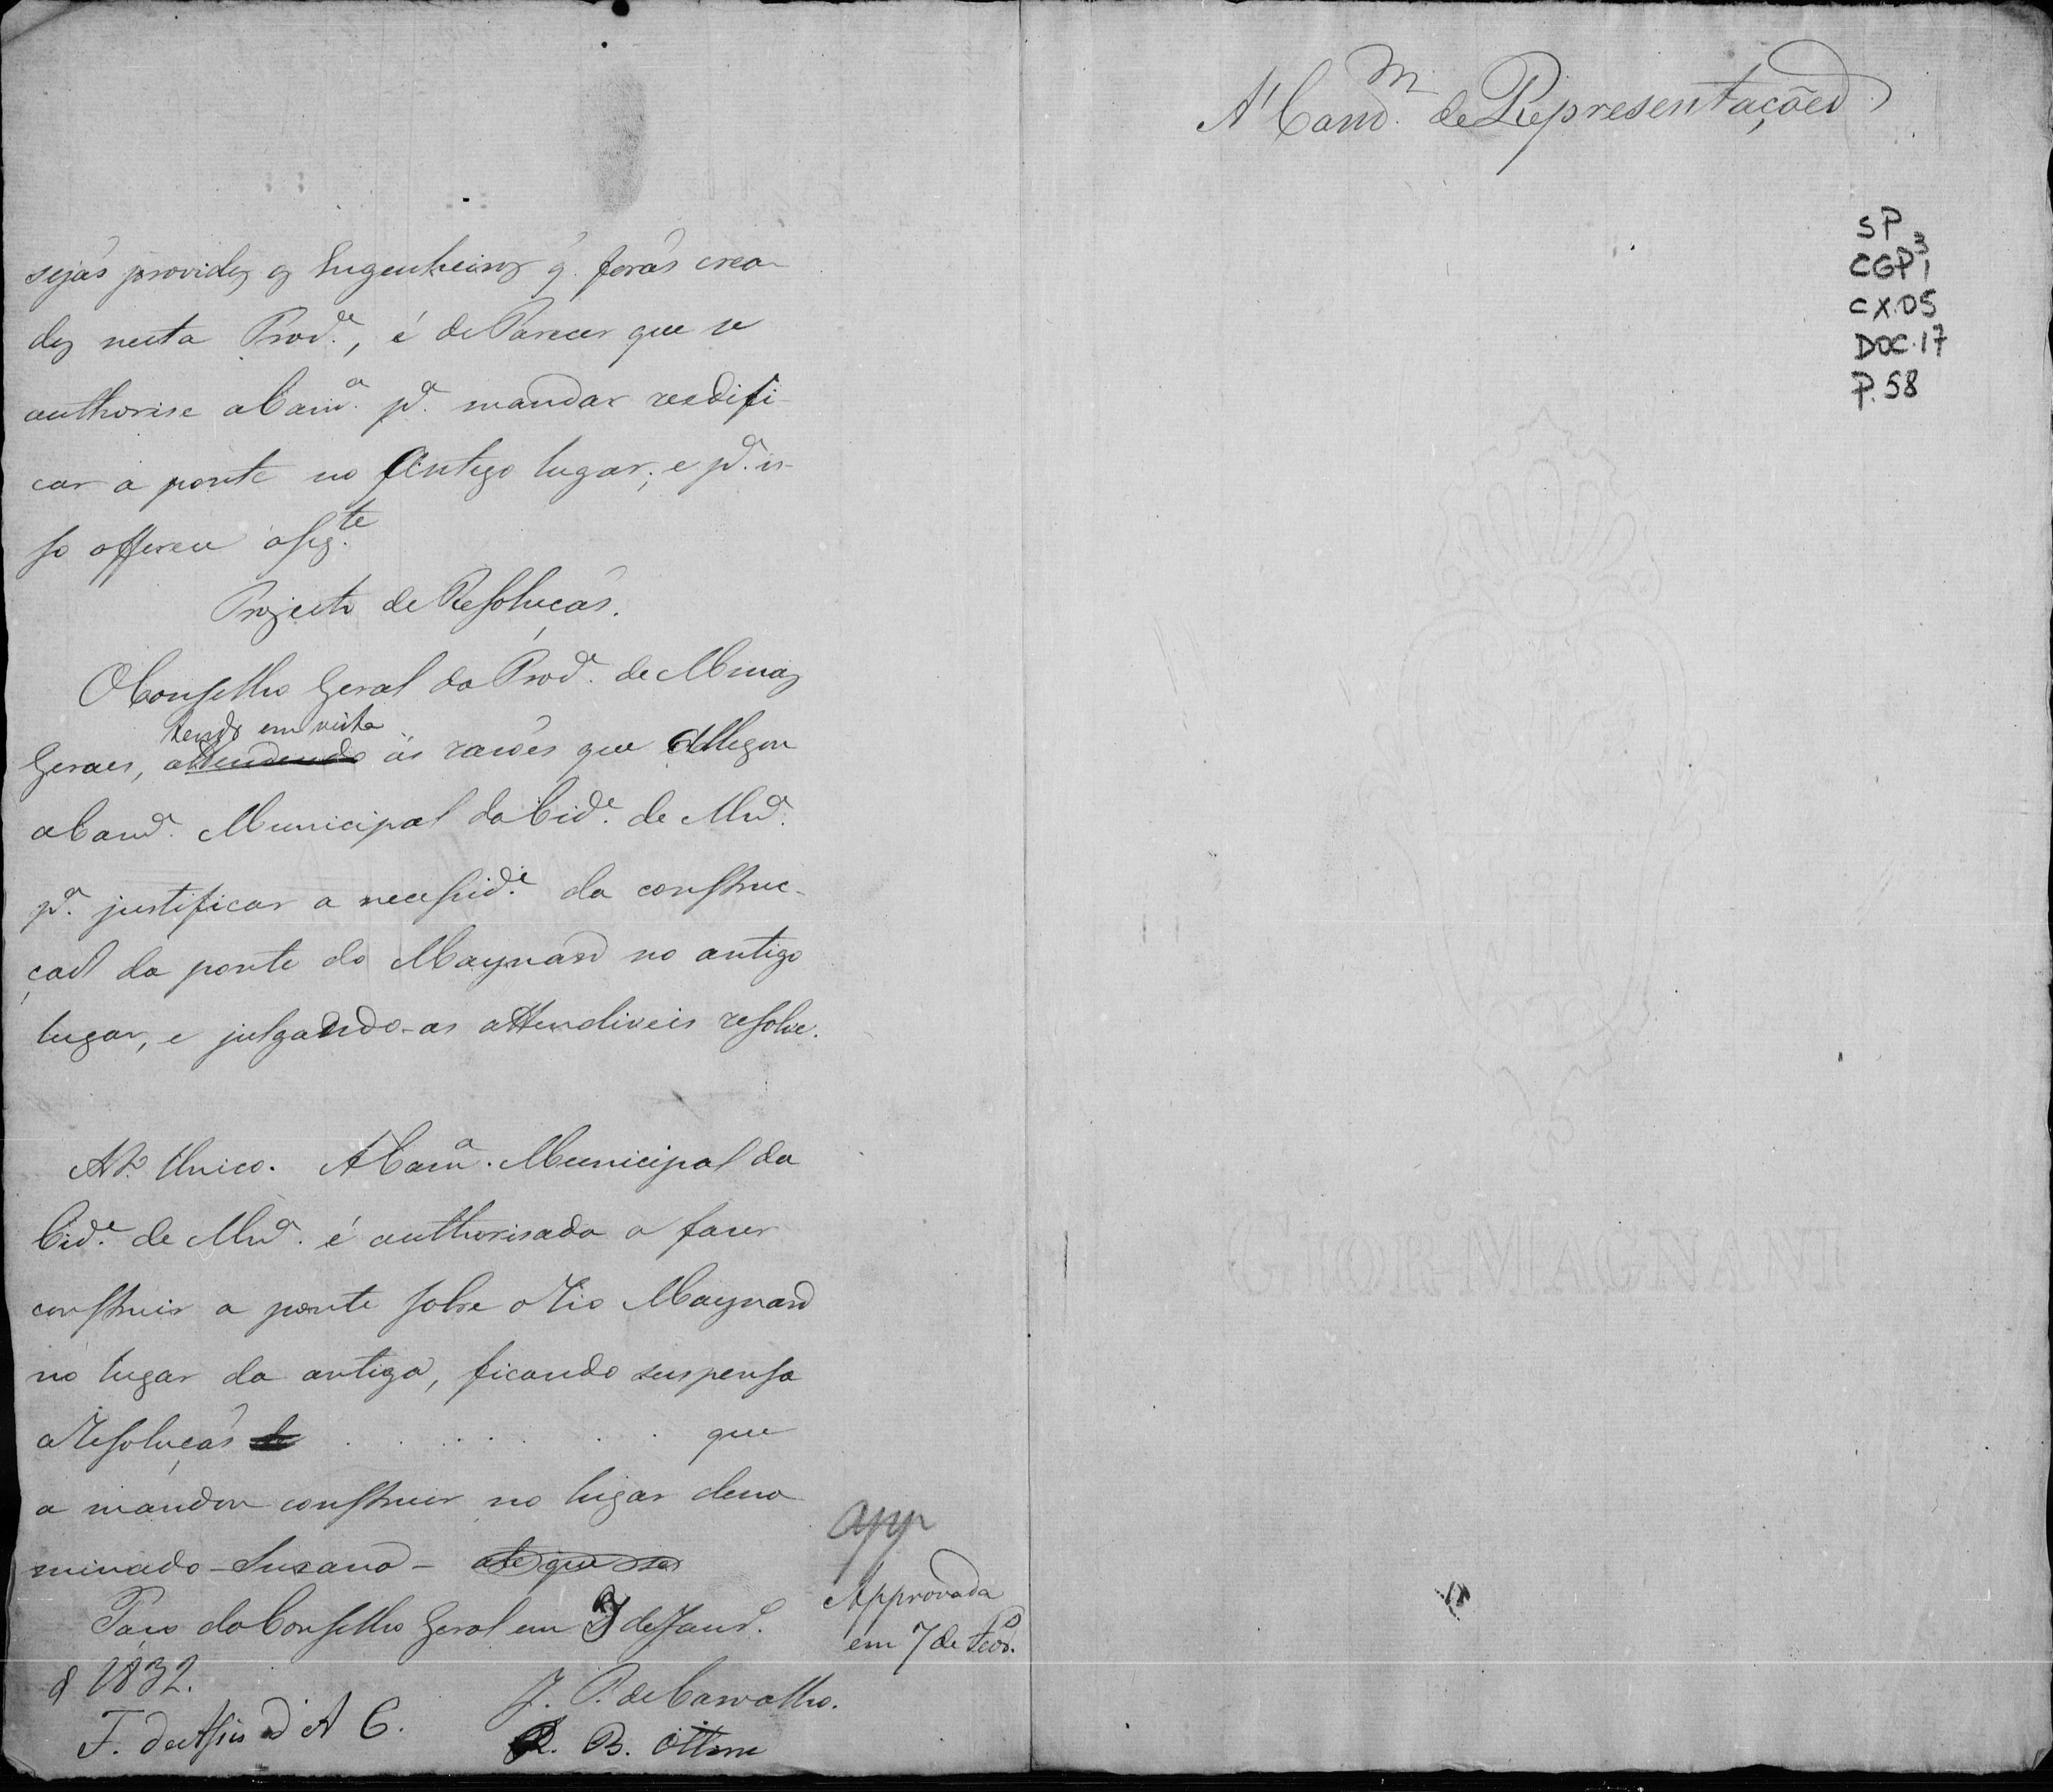 sejaõ providos os Engenheiros q̃. foraõ crea-
dos nesta Prov.ª, é de Parecer que se
authorise a Cam.ª p.ª mandar reedifi-
car a ponte no Antigo lugar; e p.ª is-
so offerece o seg.te
Projecto de Resoluçaõ.
O Conselho Geral da Prov.ª de Minas
tendo em vista
Geraes, attendendo ás razoẽs que allegou
a Cam.ª Municipal da Cid.e de Mn.ª
p.ª justificar a necessid.e da construc-
çaõ da ponte do Maynard no antigo
lugar, e julgando-as attendiveis resolve.
Ar. Unico. A Cam.ª Municipal da
Cid.e de Mn.ª é authorisada a fazer
construir a ponte sobre o Rio Maynard
no lugar da antiga, ficando suspensa
a Resoluçaõ de . . . . . . . . que
a mandou construir no lugar deno
minado - Suzana - até que se
Paço do Conselho Geral em de Janr.º
d 1832.
J. P. de Carvalho.
F. de Assis d' A C.
B. Ottoni
app
Approvada
em 7 de Fevr.º
A' Comm. de Representações
SP
CGP 1 3
CX.05
DOC.17
P.58
GIOR MAGNANI